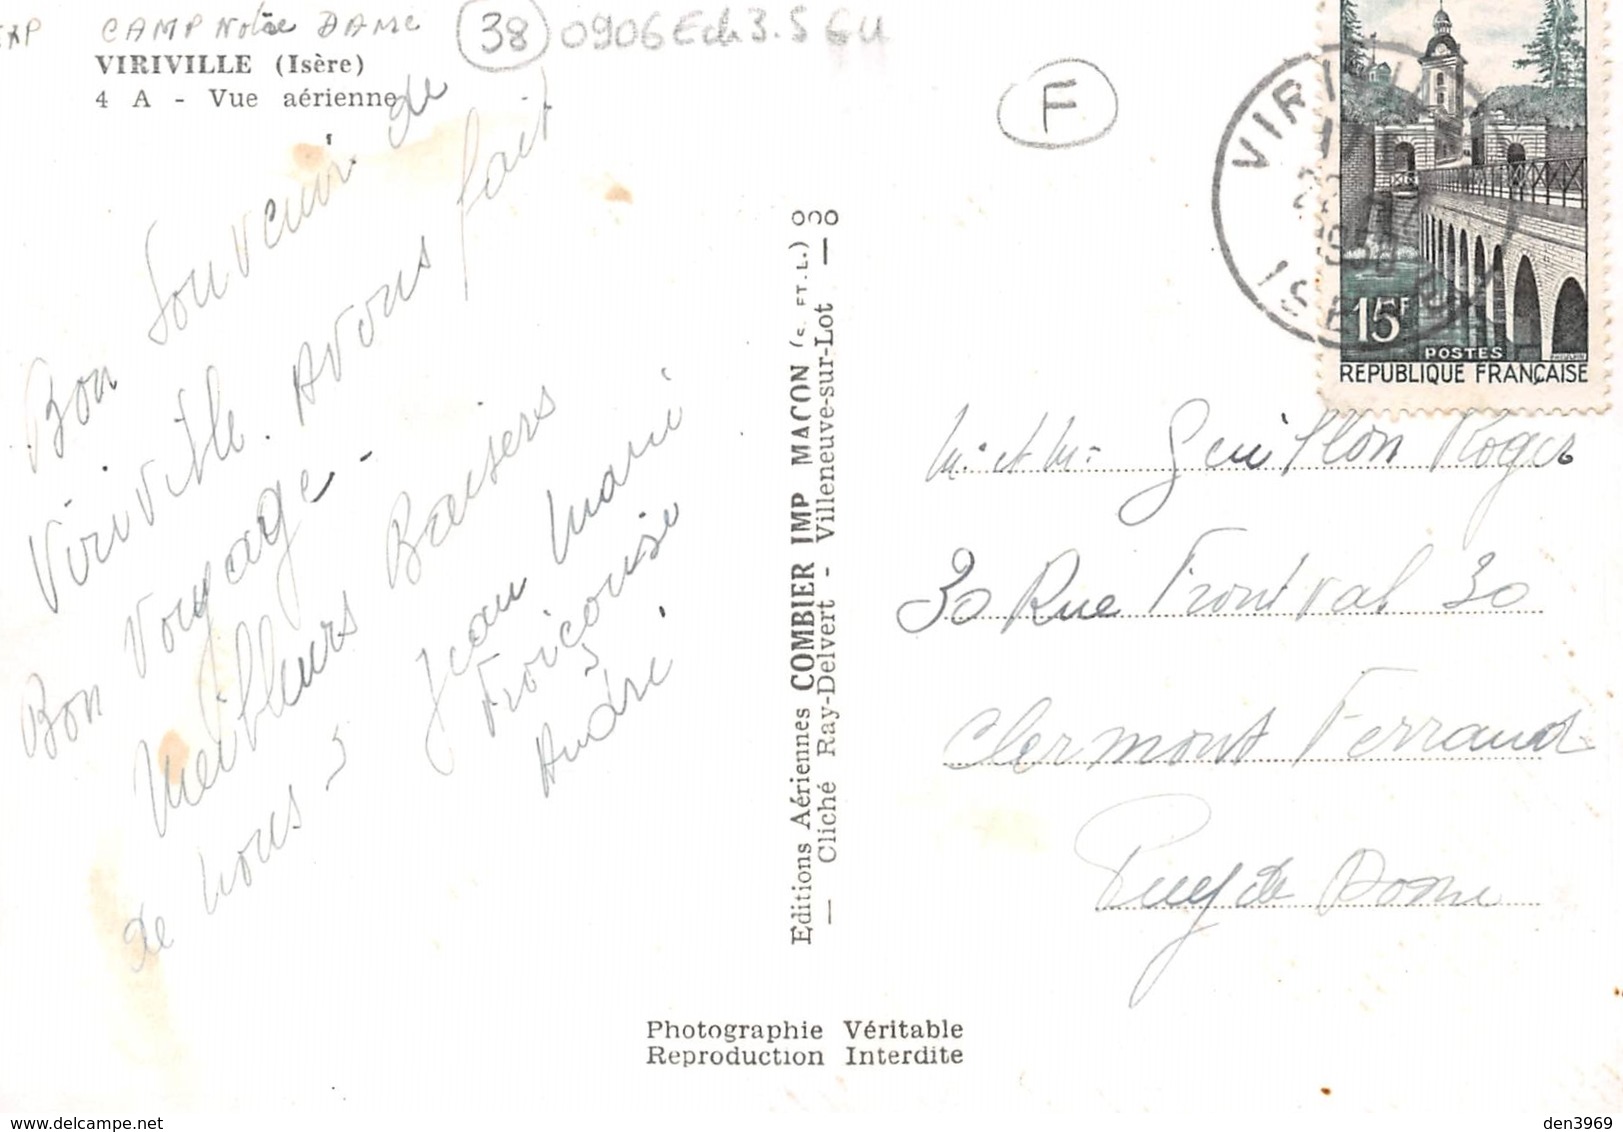 EXP CAMP Notre DAME
38
0906 Ech 3.5 GU
VIRIVILLE (Isère)
4 A - Vue aérienne
F
Bon Souvenir de
Viriville. Avons fait
Bon Voyage -
Meilleurs Baisers
de nous 3
Jean Marie
Françoise
André.
Editions Aériennes COMBIER IMP MACON (S. FT. L.)
— Cliché Ray-Delvert - Villeneuve-sur-Lot —
VIRIVILLE
ISERE
15F
POSTES
REPUBLIQUE FRANÇAISE
M. et Mme Guillon Roger
30 Rue Frontval 30
Clermont Ferrand
Puy de Dome
Photographie Véritable
Reproduction Interdite
den3969